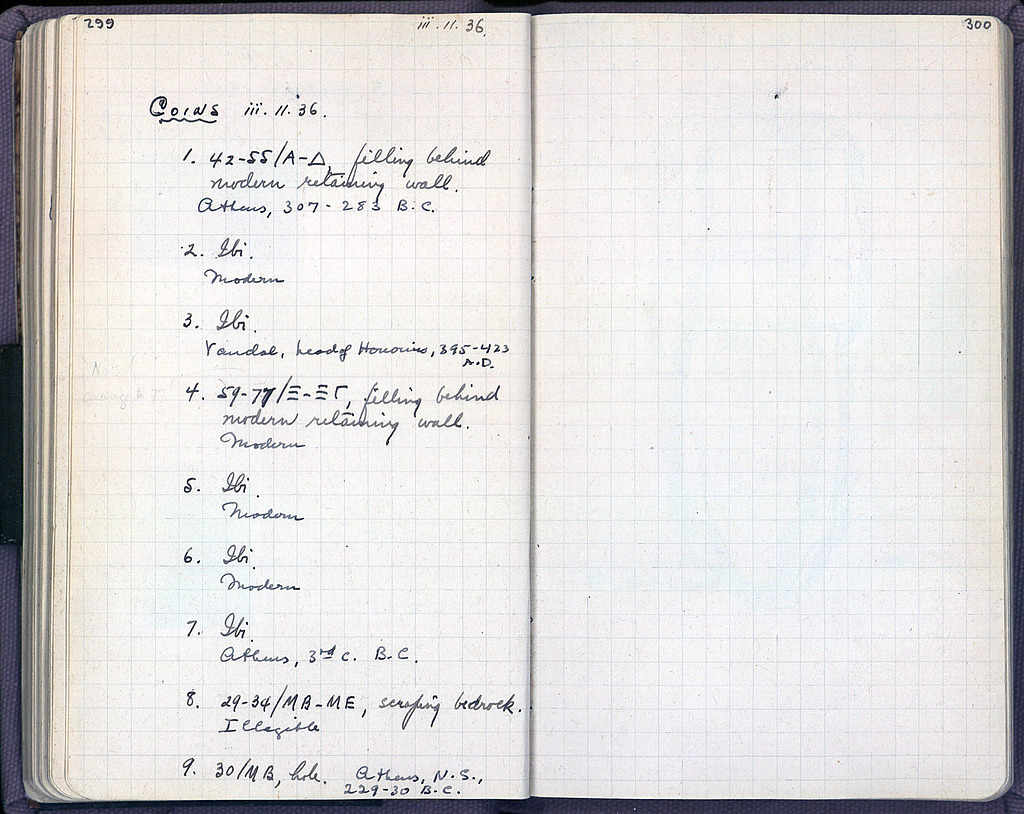 299
iii.11.36.
Coins iii.11.36.
1. 42-55/A-Δ, filling behind
modern retaining wall.
Athens, 307-283 B.C.
2. Ibi.
Modern
3. Ibi.
Vandal, head of Honorius, 395-423
A.D.
4. 59-77/Ξ-ΞΓ, filling behind
modern retaining wall.
Modern
5. Ibi.
Modern
6. Ibi.
Modern
7. Ibi.
Athens, 3rd c. B.C.
8. 29-34/ΜΒ-ΜΕ, scraping bedrock.
Illegible
9. 30/ΜΒ, hole. Athens, N.S.,
229-30 B.C.
300